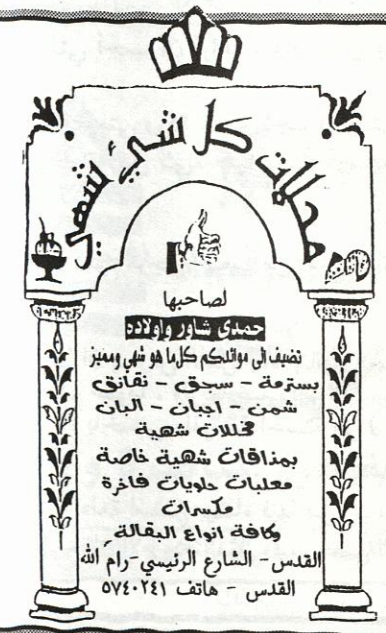 محلات كل شيئ شهي
لصاحبها
حمدي شاور واولاده
تضيف الى موائدكم كل ما هو شهي ومميز
بسترمة - سجق - نقانق
شمن - اجبان - البان
مخللات شهية
بمذاقات شهية خاصة
معلبات حلويات فاخرة
مكسرات
وكافة انواع البقالة
القدس - الشارع الرئيسي - رام الله
القدس - هاتف ٥٧٤٠٢٤١